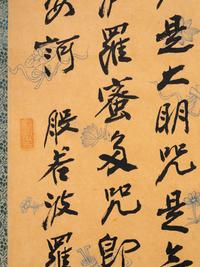 是大明咒是
羅蜜多咒即
訶 般若波羅